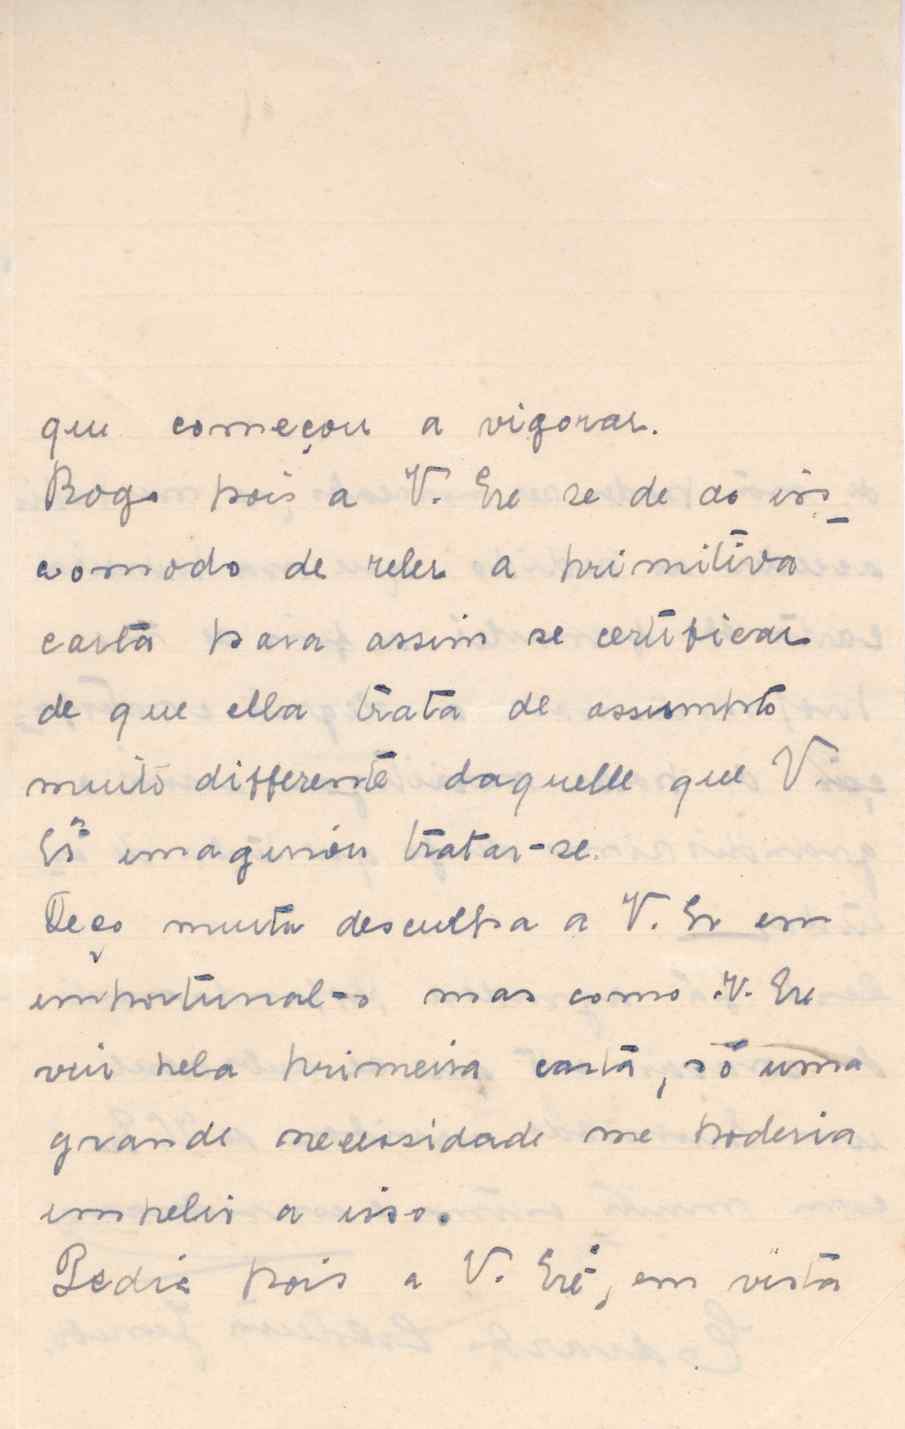 que começou a vigorar.
Rogo pois a V. Exe se de ao in-
comodo de reler a primitiva
carta para assim se certificar
de que ella trata de assumpto
muito differente daquelle que V.
Eª imaginou tratar-se.
Peço muita desculpa a V. Ex em
importunal-o mas como V. Exe
viu pela primeira carta, só uma
grande necessidade me poderia
impelir a isso.
Pedia pois a V. Exê, em vista